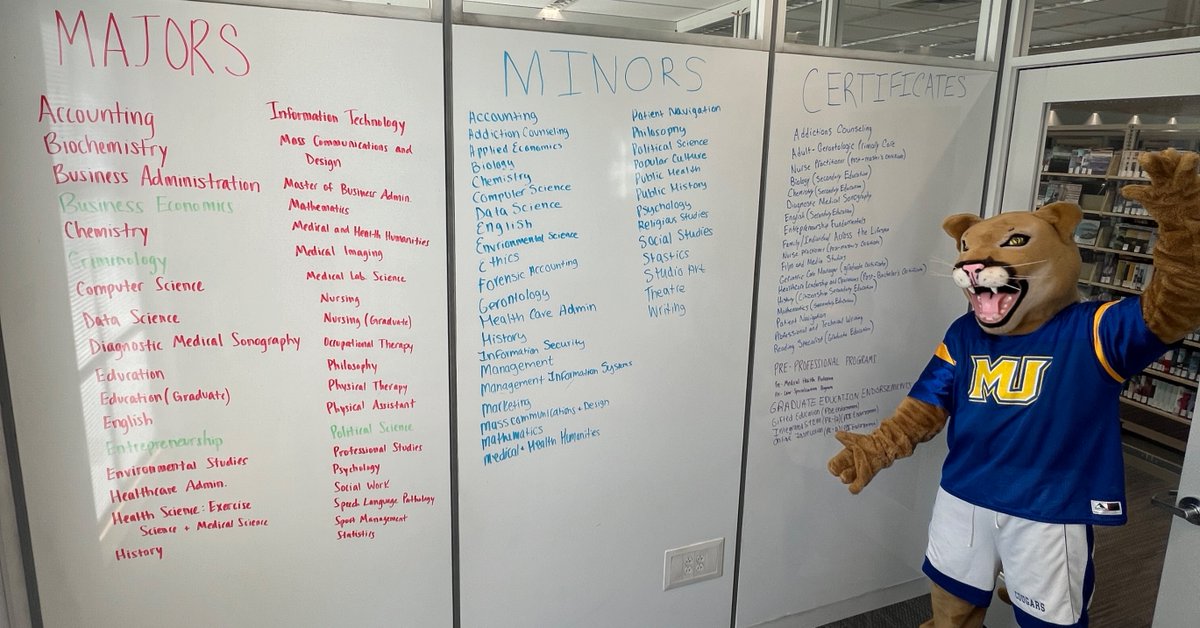 MAJORS
Accounting
Biochemistry
Business Administration
Business Economics
Chemistry
Criminology
Computer Science
Data Science
Diagnostic Medical Sonography
Education
Education (Graduate)
English
Entrepreneurship
Environmental Studies
Healthcare Admin.
Health Science: Exercise
Science + Medical Science
History
Information Technology
Mass Communications and
Design
Master of Business Admin.
Mathematics
Medical and Health Humanities
Medical Imaging
Medical Lab. Science
Nursing
Nursing (Graduate)
Occupational Therapy
Philosophy
Physical Therapy
Physical Assistant
Political Science
Professional Studies
Psychology
Social Work
Speech Language Pathology
Sport Management
Statistics
MINORS
Accounting
Addiction Counseling
Applied Economics
Biology
Chemistry
Computer Science
Data Science
English
Environmental Science
Ethics
Forensic Accounting
Gerontology
Health Care Admin
History
Information Security
Management
Management Information Systems
Marketing
Mass communications + Design
Mathematics
Medical + Health Humanities
Patient Navigation
Philosophy
Political Science
Popular Culture
Public Health
Public History
Psychology
Religious Studies
Social Studies
Stastics
Studio Art
Theatre
Writing
CERTIFICATES
Addictions Counseling
Adult-Gerontologic Primary Care
Nurse Practitioner (Post-master's certificate)
Biology (Secondary Education)
Chemistry (Secondary Education)
Diagnostic Medical Sonography
English (Secondary Education)
Entrepreneurship Fundamentals
Family/Individual Across the Lifespan
Nurse Practitioner (Post-masters Certificate)
Film and Media Studies
Geriatric Care Manager (graduate certificate)
Healthcare Leadership and (Post-Bachelor's Certificate)
History (Secondary Education)
Mathematics (Secondary Education)
Patient Navigation
Professional and Technical Writing
Reading Specialist (Graduate Education)
PRE-PROFESSIONAL PROGRAMS
Pre-Medical Health Professions
GRADUATE EDUCATION ENDORSEMENTS
Gifted Education (PDE endorsement)
Integrated STEM
Online Instruction
MU
COUGARS